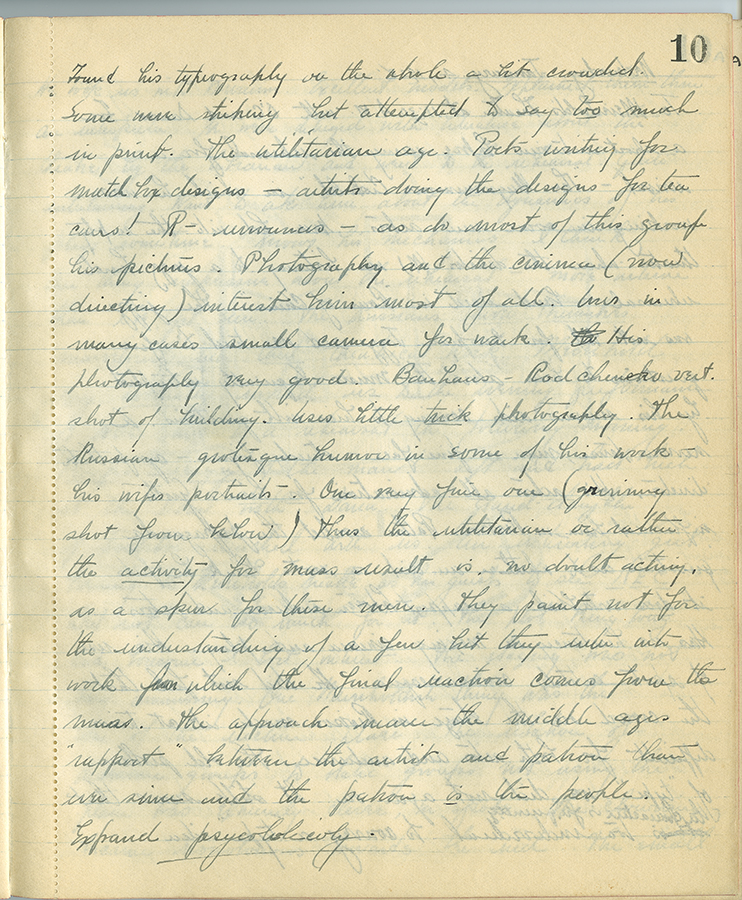 10
Found his typeography on the whole a bit crowded.
Some were striking but attempted to say too much
in print. The utilitarian age. Poets writing for
match box designs – artists doing the designs for tea
cans! R– renounces – as do most of this group
his pictures. Photography and the cinema (now
directing) interest him most of all. Uses in
many cases small camera for work. His
photography very good. Bauhaus – Rodchencko vert.
shot of building. Uses little trick photography. The
Russian – grotesque humor in some of his work –
his wifes portraits. One very fine one (
shot from below) Thus the utilitarian or rather
the activity for mass result is, no doubt acting,
as a spur for these men. They paint not for
the understanding of a few but they enter into
work from which the final reaction comes from the
mass. The approach nearer the middle ages
"rapport" between the artist and patron than
ever since and the patron is the people.
Expand psycoholicoly.